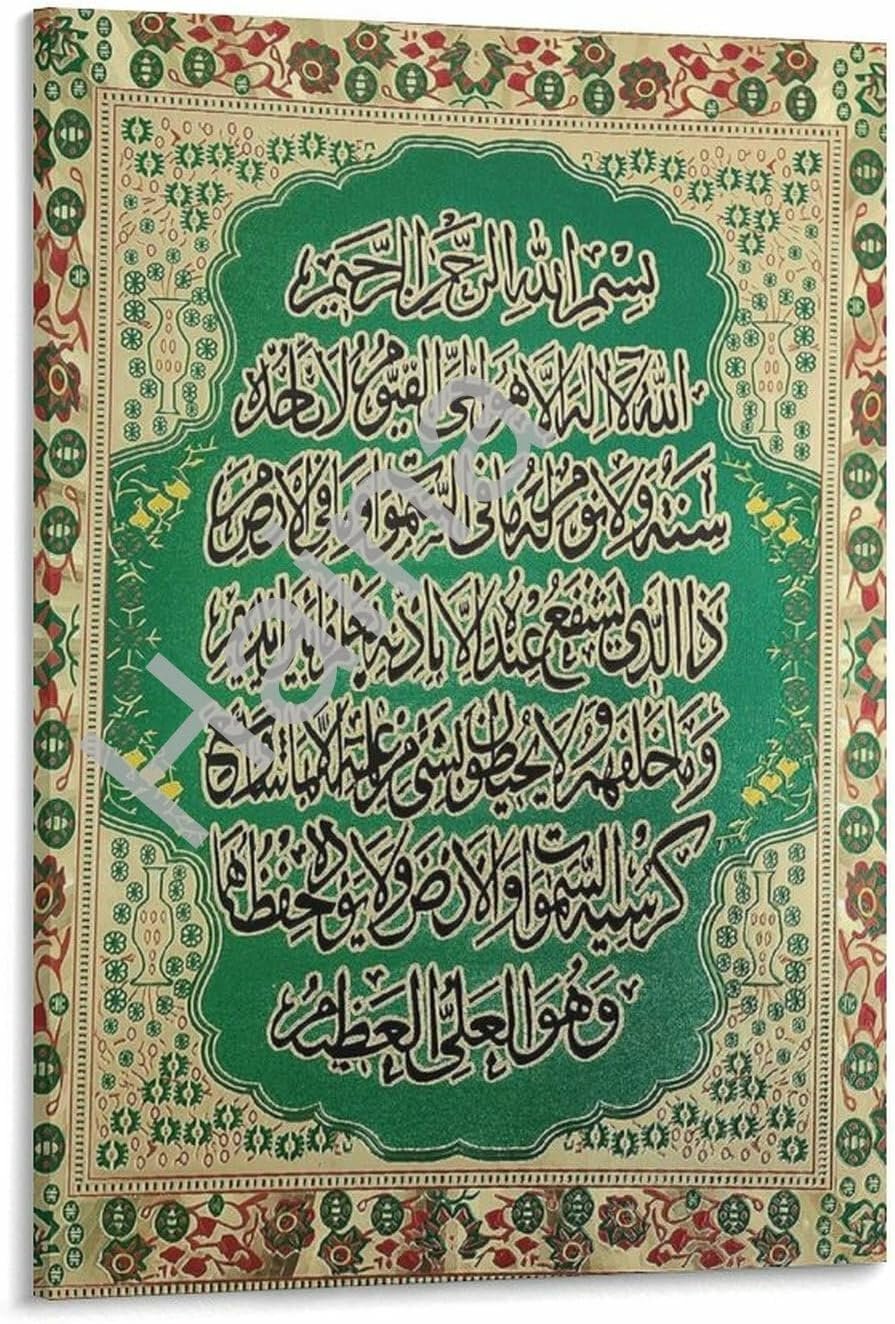 بسم الله الرحمن الرحيم
الله لا اله الا هو الحي القيوم لا تاخذه
سنة ولا نوم له ما في السموات وما في الارض من
ذا الذي يشفع عنده الا باذنه يعلم ما بين ايديهم
وما خلفهم ولا يحيطون بشئ من علمه الا بما شاء وسع
كرسيه السموات والارض ولا يؤده حفظهما
وهو العلي العظيم
Haina